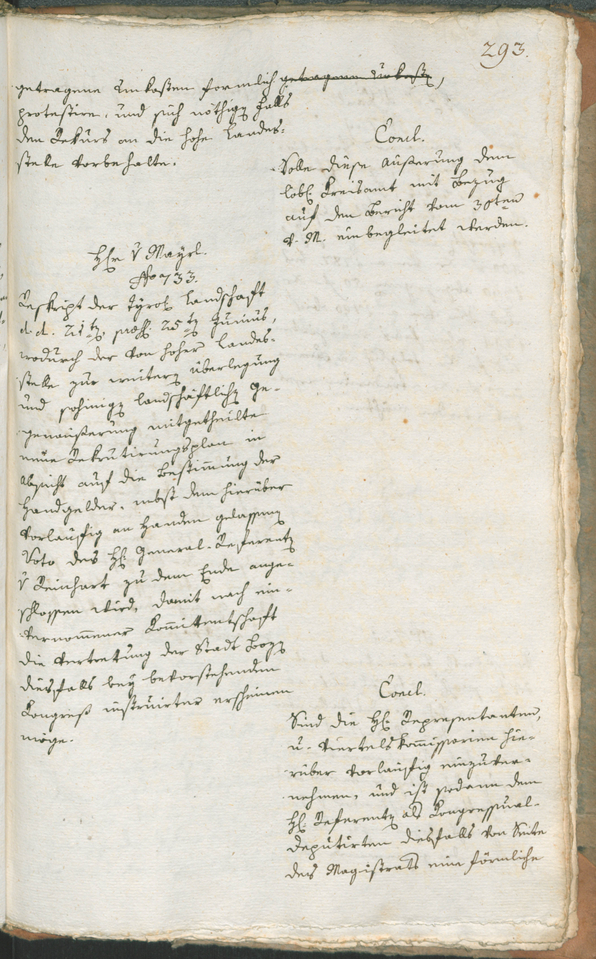 293.
getragene Unkosten formlich ~~getragene Unkosten~~,
protestire, und sich nöthigen Falls
den Rekurs an die hohe Landes-
stelle vorbehalte.
Concl.
Solle diese Äußerung dem
löbl. Kreisamt mit Bezug
auf den Bericht vom 30ten
v. M. einbegleitet werden.
Hr. v Mayrl.
No 733.
Reskript der Tyrol. Landschaft
d. d. 21ten, präs. 25ten Junius,
wodurch der von hoher Landes-
stelle zur weitern Überlegung
und sohinigen landschäftlichen Ge-
genäußerung mitgetheilte
neue Rekrutirungsplan in
Absicht auf die Bestimmung der
Handgelder, nebst dem hierüber
vorläufig an Handen gelassenen
Voto des H. General-Referenten
v Reinhart zu dem Ende ange-
schlossen wird, damit nach ein-
vernommener Kommittentschaft
die Vertretung der Stadt Bozen
diesfalls bey bevorstehendem
Kongreß instruirter erscheinen
möge.
Concl.
Sind die H. Representanten,
u. Viertelskommissarien hie-
rüber vorläufig einzuver-
nehmen, und ist sodann dem
H. Referenten als Kongressual-
Deputirten diesfalls von Seite
des Magistrats eine förmliche